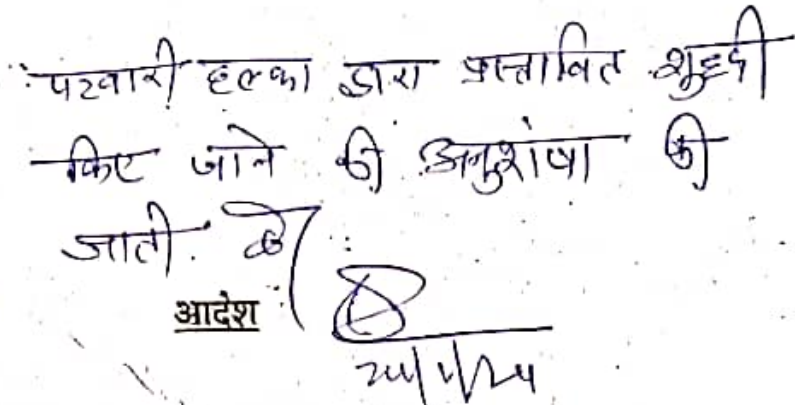 पटवारी हल्का द्वारा प्रस्तावित शुद्दी
किए जाने की अनुशंषा की
जाती है।
आदेश